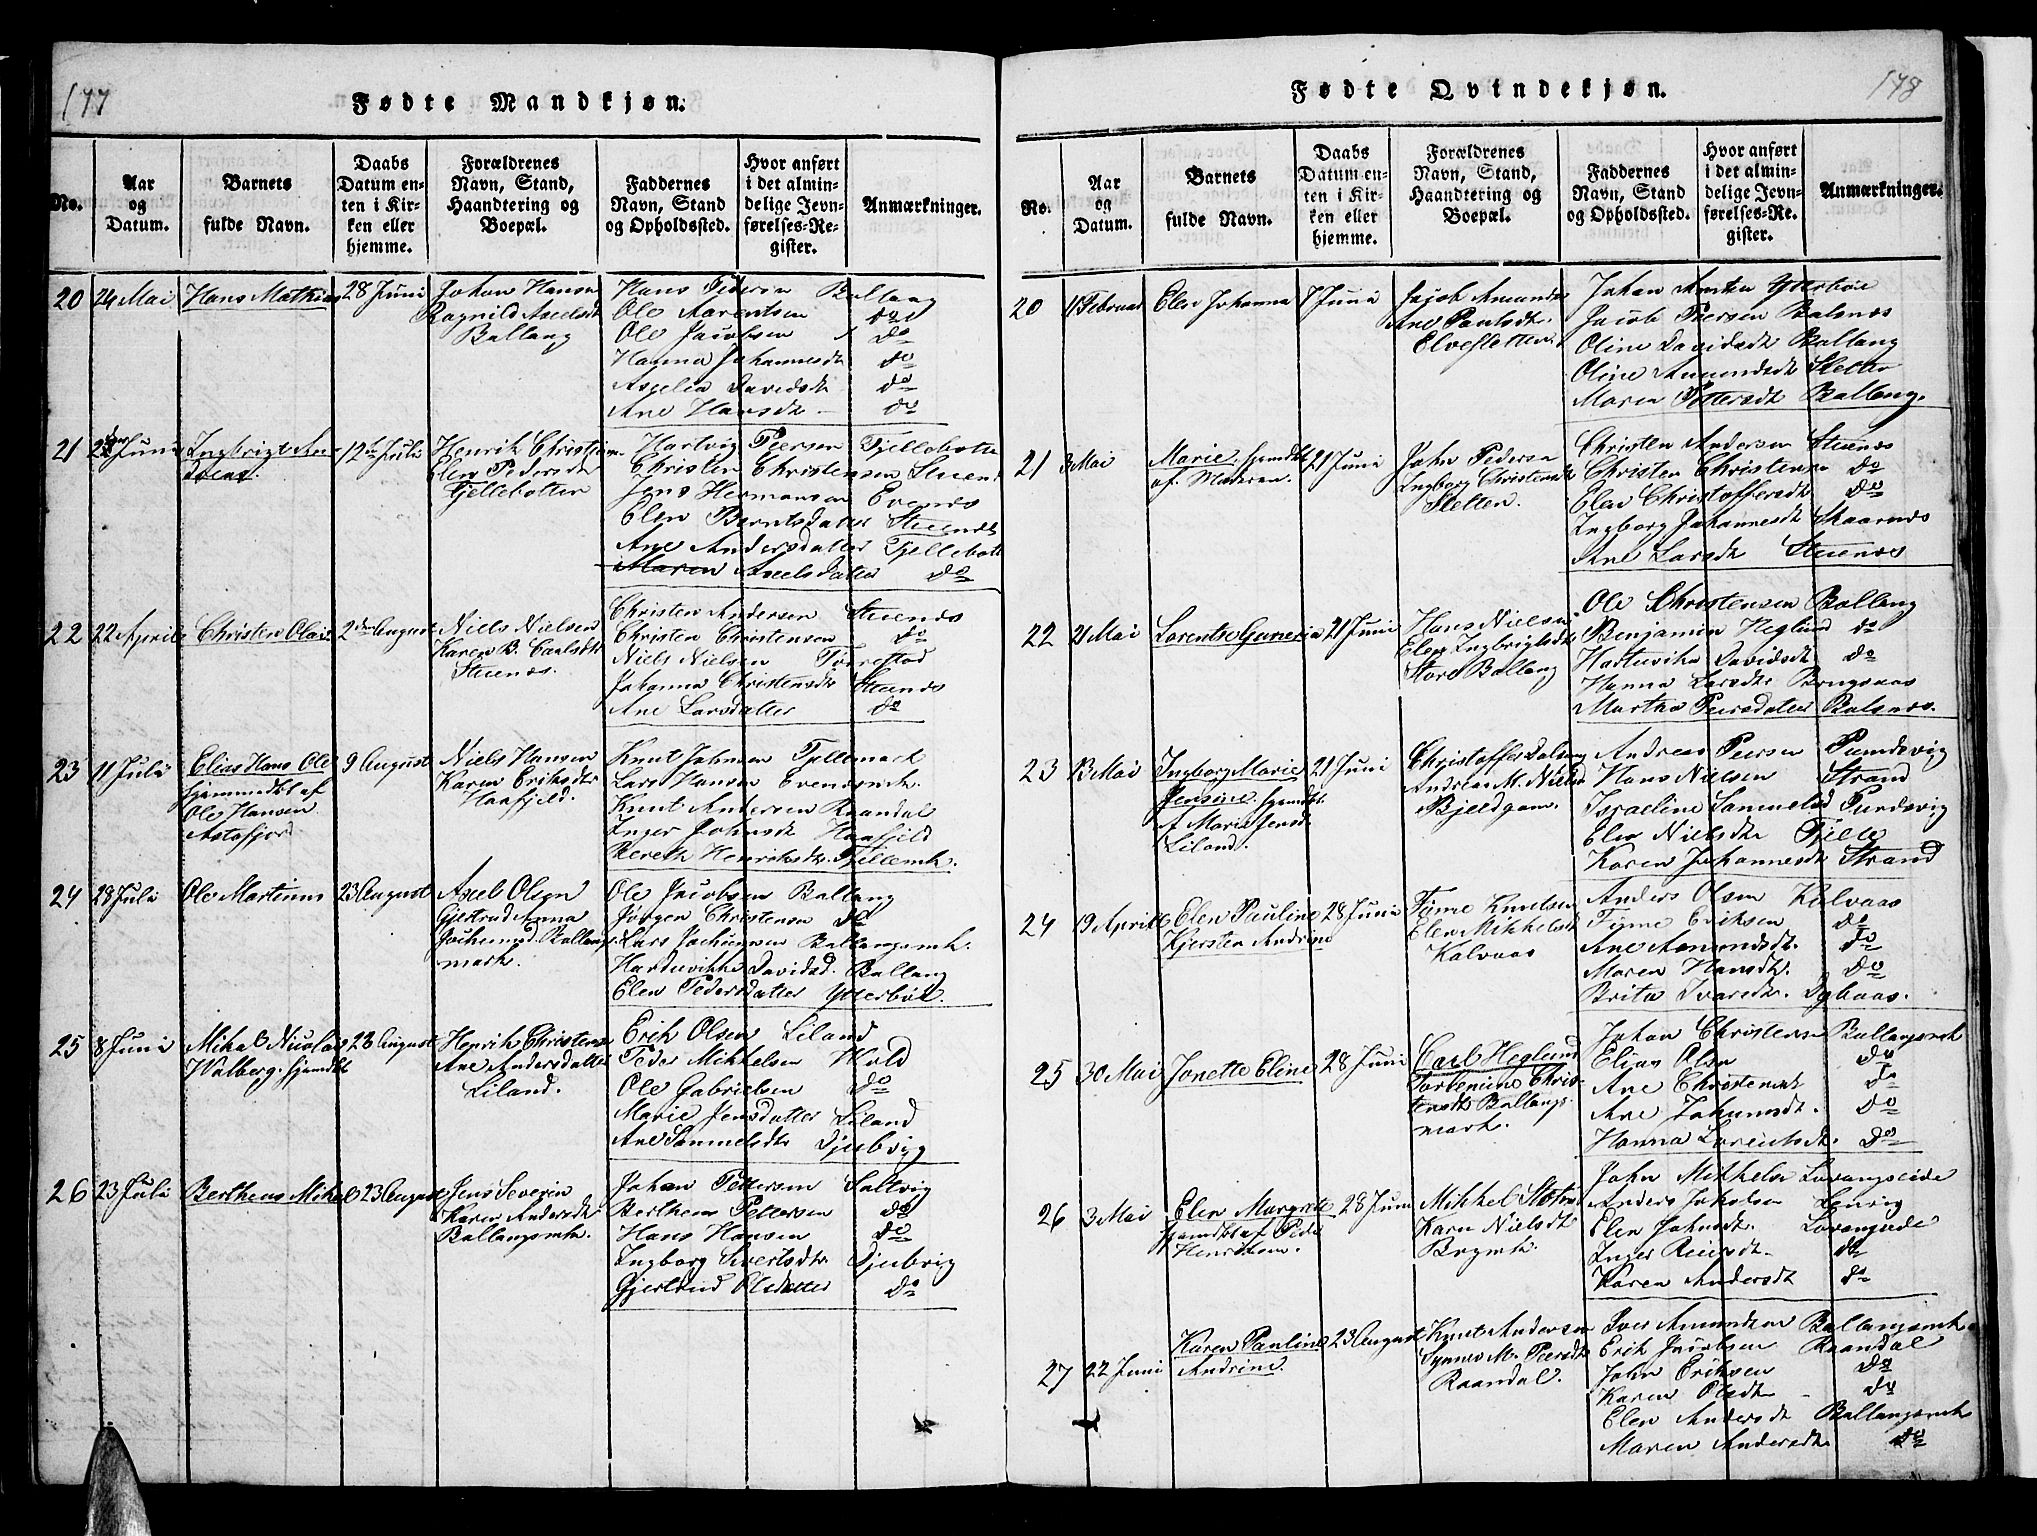 177
Fødte Mandkjøn.
No.
Aar og Datum.
Barnets fulde Navn.
Daabs Datum enten i Kirken eller hjemme.
Forældrenes Navn, Stand, Haandtering og Boepæl.
Faddernes Navn, Stand og Opholdssted.
Hvor anført i det almindelige Jevnførelses-Register.
Anmærkninger.
20 24 Mai Hans Mathias 28 Juni
Johan Hansen
Ragnild Axelsdt
Ballang
Hans Pedersen Ballang
Ole Aarentsen do
Ole Jacobsen do
Hanna Johannesdt do
Axelia Davidsdt do
Ane Hansdt do
21 Juni Ingbrigt An-
12te Juli
Henrik Christian
Elen Pedersdr
Fjellebotten
Hartvig Peersen Fjellebotn
Christen Christensen Stuenes
Jens Hermansen Evenes
Elen Berntsdatter Stuenes
Ane Andersdatter Fjellebotn
Maren Axelsdatter do
22 22 April Christen Olai 2den August
Niels Nielsen
Karen B. Carlsdt
Stuenes.
Christen Andersen Stuenes
Christen Christensen do
Niels Nielsen Taarestad
Johanna Christensdr Stuenes
Ane Larsdatter do
23 11 Juli Elias Hans Ole 9 August
hjemmedøbt af
Ole Hansen
Astafjord
Niels Hansen
Karen Eriksdtr
Haafjeld.
Knut Johnsen Fjellmark
Lars Hansen Evenesmk.
Knut Andersen Raandal
Inger Johnsdt Haafjeld
Bereth Henriksdt. Fjellemk.
24 28 Juli Ole Martinus 23 August
Axel Olsen
Gjertrud Anna
Jochumsd. Ballangs-
mark.
Ole Jacobsen Ballang
Jørgen Christensen do
Lars Jochumsen Ballangsmk.
Harduvikke Davidsd. Ballang
Elen Pedersdatter Ytterbøe.
25 8 Juni Mikal Nicolai 23 August
Walberg. hjemdbt
Henrik Christens
Ane Andersdatter
Liland.
Erik Olsen Liland
Peder Mikkelsen Wold
Ole Gabrielsen do
Marie Jensdatter Liland
Ane Sammelsdtr Djubvig
26 23 Juli Bertheus Mikal 23 August
Jens Severin
Karen Andersdt
Ballangsmk.
Johan Pettersen Saltvig
Bertheus Pettersen do
Hans Hansen do
Ingborg Sivertsdtr Djubvig
Gjertrud Olsdatter do
178
Fødte Qvindekjøn.
No.
Aar og Datum.
Barnets fulde Navn.
Daabs Datum enten i Kirken eller hjemme.
Forældrenes Navn, Stand, Haandtering og Boepæl.
Faddernes Navn, Stand og Opholdssted.
Hvor anført i det almindelige Jevnførelses-Register.
Anmærkninger.
20 11 Februar Elen Johanna 7 Juni
Jacob Amundse
Ane Paulsdt.
Elvesletten
Johan Ytterbøe
Jacob Peersen Balsnes
Oline Davidsdt Ballang
Oline Amundsdt Sletten
Maren Pettersdt Ballang.
21 3 Mai Marie hjemdbt 21 Juni
af Moderen.
John Pedersen
Ingborg Christensdt
Sletten.
Christen Andersen Stuenes
Christen Christensen do
Elen Christoffersdt do
Ingborg Johannesdt Skaarnes
Ane Larsdt Stuenes
22 21 Mai Lorentse Guneria 21 Juni
Hans Nielsen
Elen Ingbrigtsdt
Store Ballang
Ole Christensen Ballang
Benjamin Heglund do
Davidsdt do
Hanna Larsdtr
Martha Peersdatter Balsnes.
23 13 Mai Ingborg Marie 21 Juni
Jensine. hjemdbt.
af Marie Jensd.
Liland.
Christoffer
Andrea M. Niels
Bjeldgam.
Andreas Peersen Pundsvig
Hans Nielsen Strand
Israeline Sammelsd Pundsvig
Elen Nielsdtr Fjelle
Karen Johannesdt Strand
24 19 April Elen Pauline 28 Juni
Kjersten Andrine
Tyme Knudsen
Elen Mikkelsdt
Kalvaas
Anders Olsen Kalvaas
Tyme Eriksen do
Ane Amundsdt. do
Maren Hansdtr. do
Brita Ivarsdt. Dybaas.
25 30 Mai Jonette Eline 28 Juni
Carl Heglund
Torbenine Chris-
tensdt Ballangs-
mark.
Johan Christense Ballangsmk
Elias Olsen do
Ane Christensdt do
Ane Johannesdt. do
Hanna Lorentsdt. do
26 3 Mai Elen Margrete 28 Juni
hjemdbt af Peder
Henriksen.
Mikkel
Karen Nielsdt
Bergmk.
John Mikkelse Lavangseide
Anders Jakobsen Lenvig
Elen Johnsdt. Lavangseide
Inger do
Karen Andersdt do
27 22 Juni Karen Pauline 23 August
Andrine.
Knut Andersen
Synnev M. Peersdt
Raandal.
Iver Amundsen Ballangsmk
Erik Jacobsen Raandal
John Eriksen do
Karen Olsdt do
Elen Andersdt Ballangsmk
Maren Andersdt. do